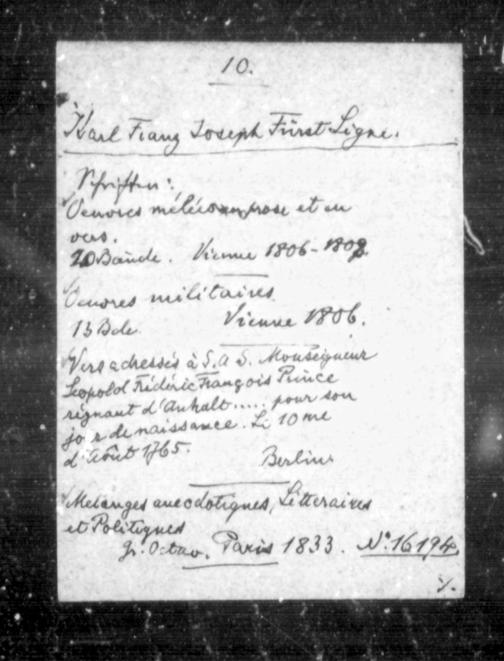 10.
Karl Franz Joseph Fürst Ligne.
Schriften:
Oeuvres mélées en prose et en
vers.
20 Bände. Vienne 1806-1808
Oeuvres militaires
13 Bde. Vienne 1806.
Vers adressés à S. A S. Monseigneur
Leopold Fréderic François Prince
rignant d'Anhalt..... pour son
jour de naissance. Le 10 me
d'Août 1765.
Berlin.
Melanges anecdotiques, Litteraires
et Politiques
gr. Octav. Paris 1833. No. 16194.